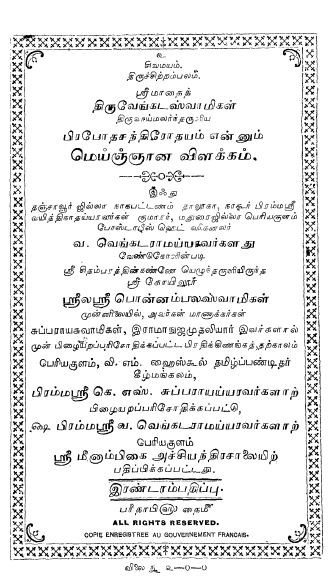 உ
சிவமயம்.
திருச்சிற்றம்பலம்.
ஸ்ரீமாதைத்
திருவேங்கடஸ்வாமிகள்
திருவாய்மலர்ந்தருளிய
பிரபோதசந்திரோதயம் என்னும்
மெய்ஞ்ஞான விளக்கம்.
இஃது
தஞ்சாவூர் ஜில்லா நாகபட்டணம் தாலூகா, நாகூர் பிரம்மஸ்ரீ
வயித்திநாதய்யரவர்கள் குமாரர், மதுரைஜில்லா பெரியகுளம்
போஸ்டாபீஸ் ஹெட்
வ. வெங்கடராமய்யரவர்களது
வேண்டுகோளின்படி
ஸ்ரீ சிதம்பரத்தின்கண்ணே யெழுந்தருளியிருந்த
ஸ்ரீ கோயிலூர்
ஸ்ரீலஸ்ரீ பொன்னம்பலஸ்வாமிகள்
முன்னிலையில், அவர்கள் மாணாக்கர்கள்
சுப்பராயசுவாமிகள், இராமாநுஜமுதலியார் இவர்களால்
முன் பிழையறப்பரிசோதிக்கப்பட்ட பிரதிக்கிணங்கத், தற்காலம்
பெரியகுளம், வி. எம். ஹைஸ்கூல் தமிழ்ப்பண்டிதர்
கீழ்மங்கலம்,
பிரம்மஸ்ரீ கெ. எஸ். சுப்பராய்யரவர்களாற்
பிழையறப்பரிசோதிக்கப்பட்டு,
௸ பிரம்மஸ்ரீ வ. வெங்கடராமய்யரவர்களாற்
பெரியகுளம்
ஸ்ரீ மீனாம்பிகை அச்சியந்திரசாலையிற்
பதிப்பிக்கப்பட்டது.
இரண்டாம்பதிப்பு.
பரிதாபி௵ தைமீ
ALL RIGHTS RESERVED.
COPIE ENREGISTREE AU GOUVERNEMENT FRANCAIS.
விலை ரூ ௨-0-0